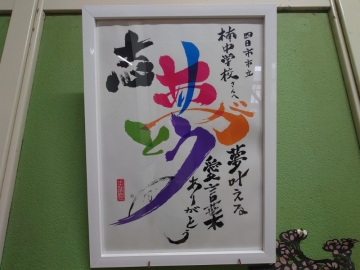 四日市市立
楠中学校さんへ
夢叶える
愛言葉
ありがとう
志
ありがとう